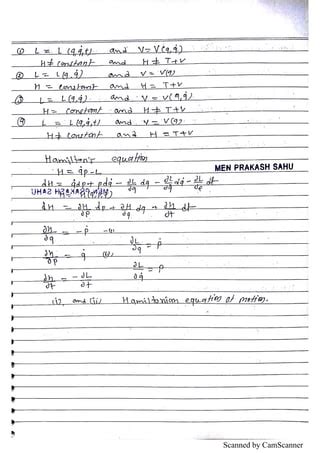 ① L = L (q,q̇,t) and V = V(q,q̇)
H ≠ constant and H ≠ T+V
② L = L(q,q̇) and V = V(q)
H = constant and H = T+V
③ L = L(q,q̇) and V = V(q,q̇)
H = constant and H ≠ T+V
④ L = L(q,q̇,t) and V = V(q)
H ≠ constant and H = T+V
Hamilton's equation
H = q̇p - L
MEN PRAKASH SAHU
dH = q̇dp + pdq̇ - ∂L/∂q dq - ∂L/∂q̇ dq̇ - ∂L/∂t dt
H = H(q,p,t)
dH = ∂H/∂p dp + ∂H/∂q dq + ∂H/∂t dt
∂H/∂q = -ṗ -(i)
∂L/∂q = ṗ
∂H/∂p = q̇ (ii)
∂L/∂q̇ = p
∂H/∂t = -∂L/∂t
(i) and (ii) Hamiltonian equation of motion.
Scanned by CamScanner